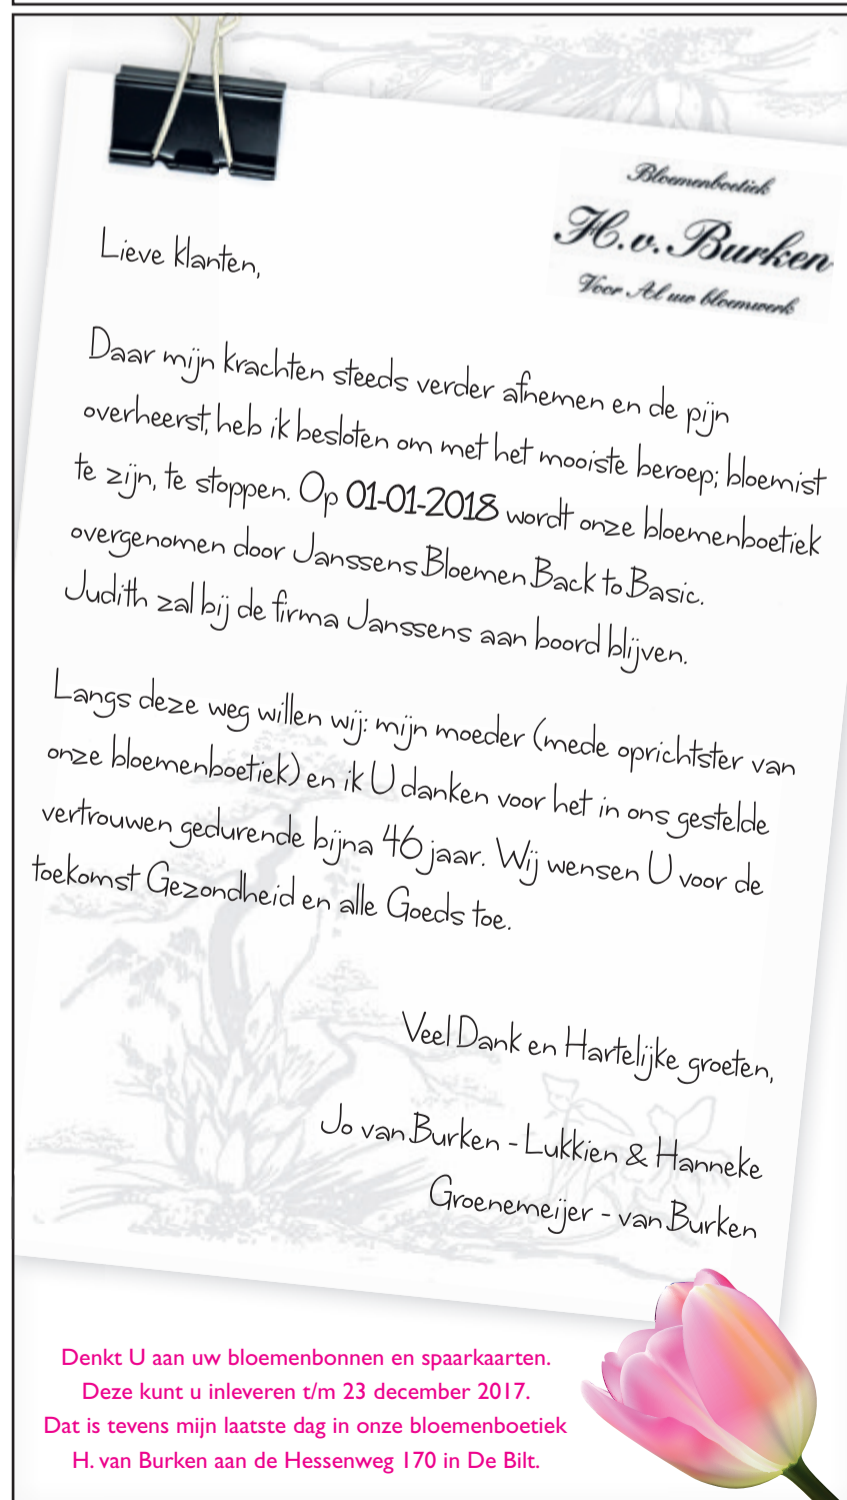 Bloemenboetiek
H.v.Burken
Voor Al uw bloemwerk
Lieve klanten,
Daar mijn krachten steeds verder afnemen en de pijn
overheerst, heb ik besloten om met het mooiste beroep; bloemist
te zijn, te stoppen. Op 01-01-2018 wordt onze bloemenboetiek
overgenomen door Janssens Bloemen Back to Basic.
Judith zal bij de firma Janssens aan boord blijven.
Langs deze weg willen wij: mijn moeder (mede oprichtster van
onze bloemenboetiek) en ik U danken voor het in ons gestelde
vertrouwen gedurende bijna 46 jaar. Wij wensen U voor de
toekomst Gezondheid en alle Goeds toe.
Veel Dank en Hartelijke groeten,
Jo van Burken - Lukkien & Hanneke
Groenemeijer - van Burken
Denkt U aan uw bloemenbonnen en spaarkaarten.
Deze kunt u inleveren t/m 23 december 2017.
Dat is tevens mijn laatste dag in onze bloemenboetiek
H. van Burken aan de Hessenweg 170 in De Bilt.